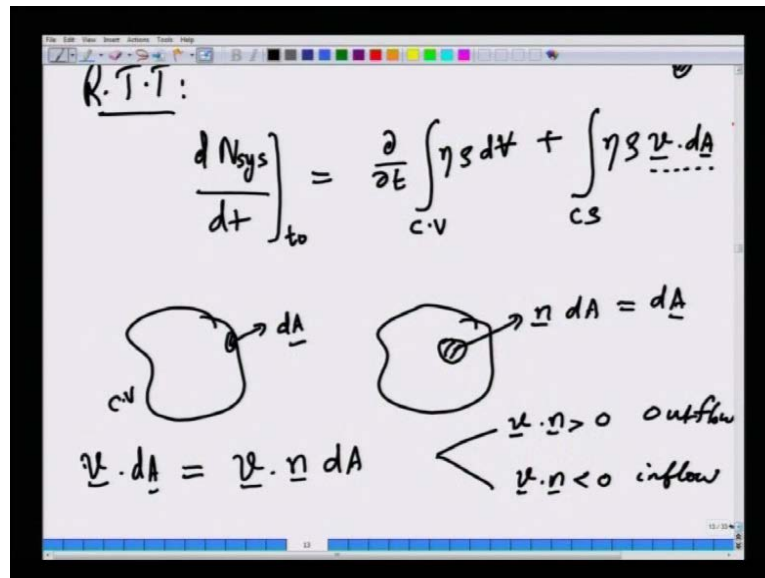 File Edit View Insert Actions Tools Help
R.T.T:
d Nsys / dt ]to = ∂/∂t ∫C.V ηρ dV + ∫CS ηρ v.dA
dA
n dA = dA
C.V
v.dA = v.n dA
v.n > 0 outflow
v.n < 0 inflow
13